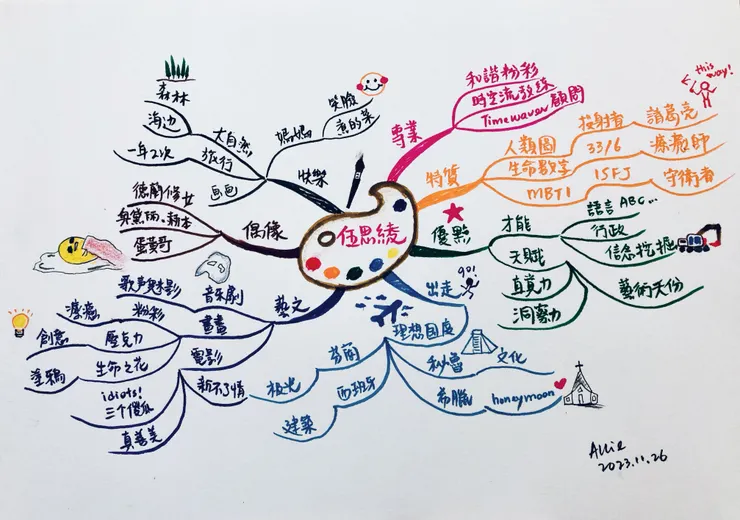 伍思綾
專業
和諧粉彩
時空流教練
Timewaver 顧問
特質
人類圖
投射者
諸葛亮
this way!
生命數字
33/6
療癒師
MBTI
ISFJ
守衛者
優點
才能
語言 ABC...
行政
天賦
信念挖掘
直覺力
藝術天份
洞察力
出走
go!
理想國度
秘魯
文化
希臘
honeymoon
西班牙
建築
芬蘭
極光
藝文
音樂劇
歌聲魅影
畫畫
粉彩
療癒
壓克力
創意
生命之花
塗鴉
電影
新不了情
idiots!
三個傻瓜
真善美
偶像
德蘭修女
奧黛麗.赫本
蛋黃哥
快樂
媽媽
笑臉
煮的菜
大自然
森林
海边
旅行
一年2次
画画
Allie
2023.11.26